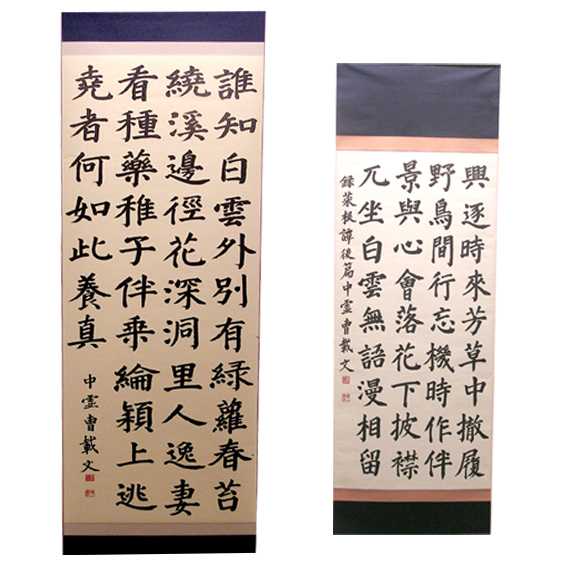 誰知白雲外別有綠蘿春苔
繞溪邊徑花深洞里人逸妻
看種藥稚子伴乘綸穎上逃
堯者何如此養真
中霊曹載文
興逐時來芳草中撤履
野鳥間行忘機時作伴
景與心會落花下披襟
兀坐白雲無語漫相留
録菜根譚後篇中霊曹載文